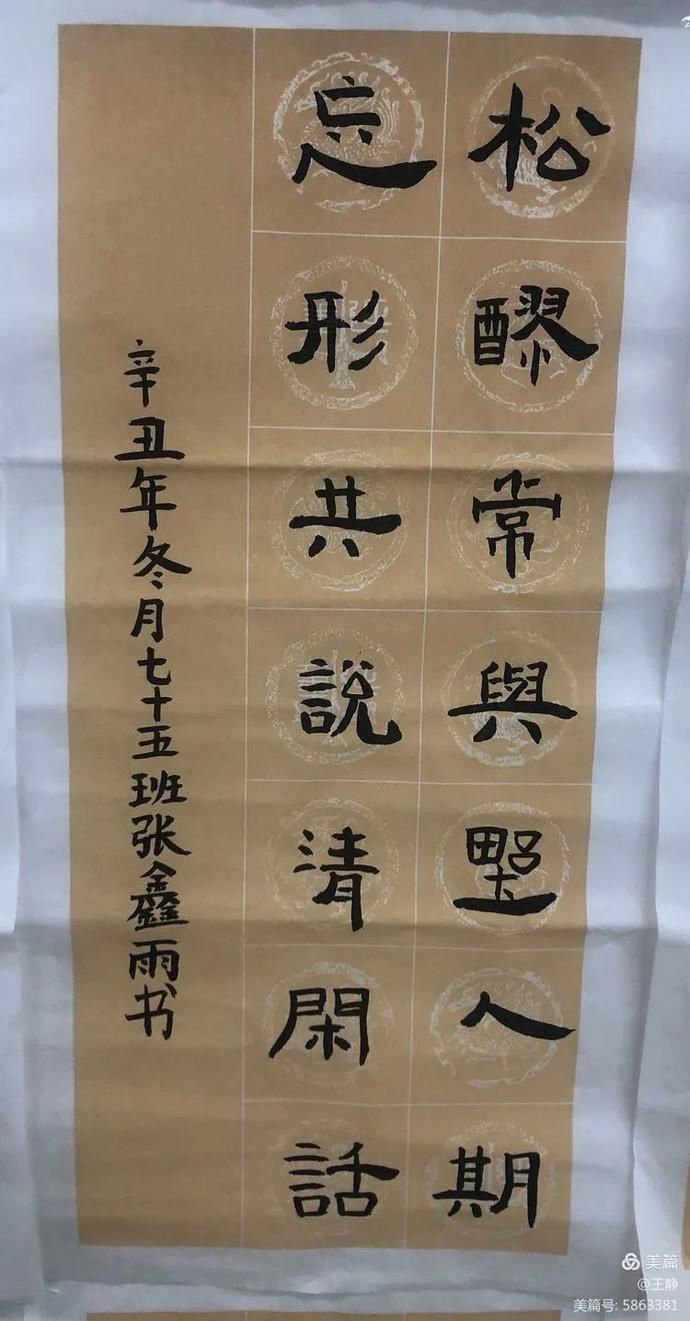 松醪常與野人期
忘形共說清閑話
辛丑年冬月七十五班张鑫雨书
美篇
@王静
美篇号: 5863381